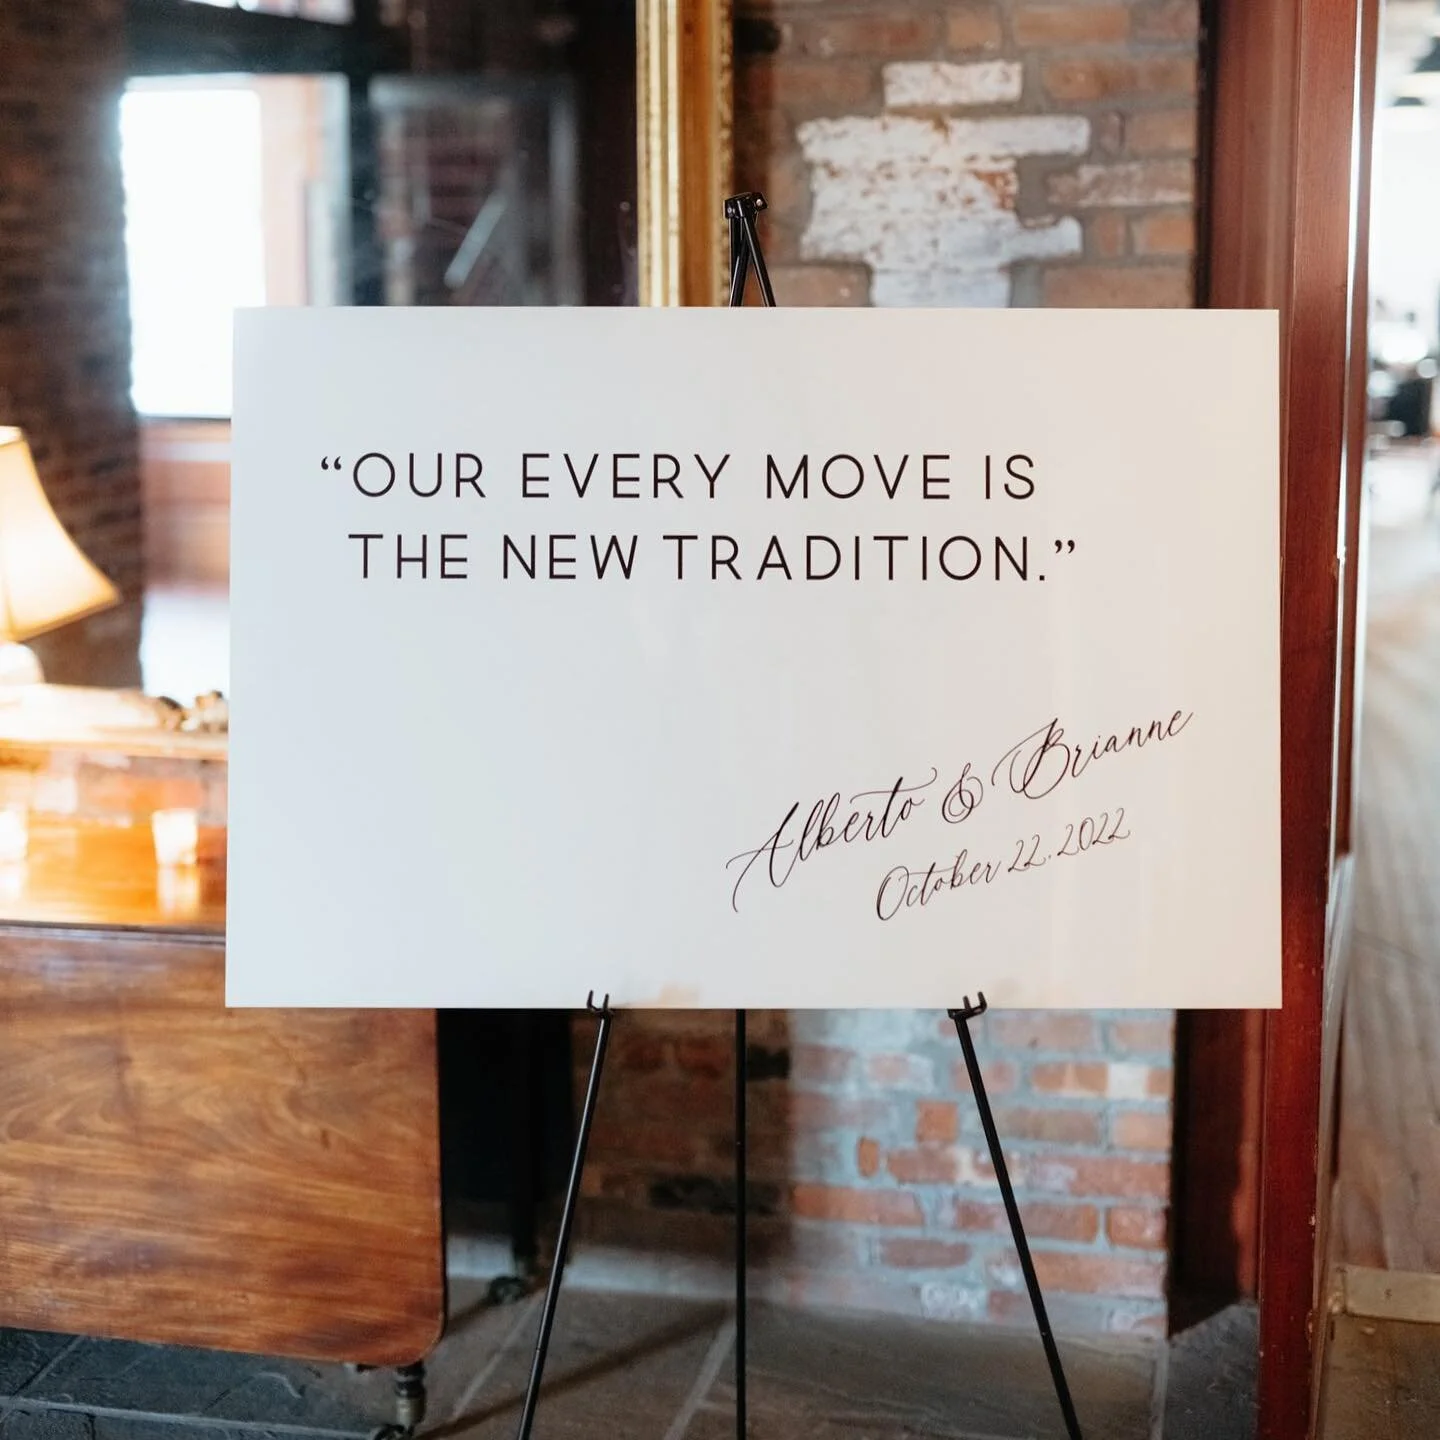 “OUR EVERY MOVE IS
THE NEW TRADITION.”
Alberto & Brianne
October 22.2022